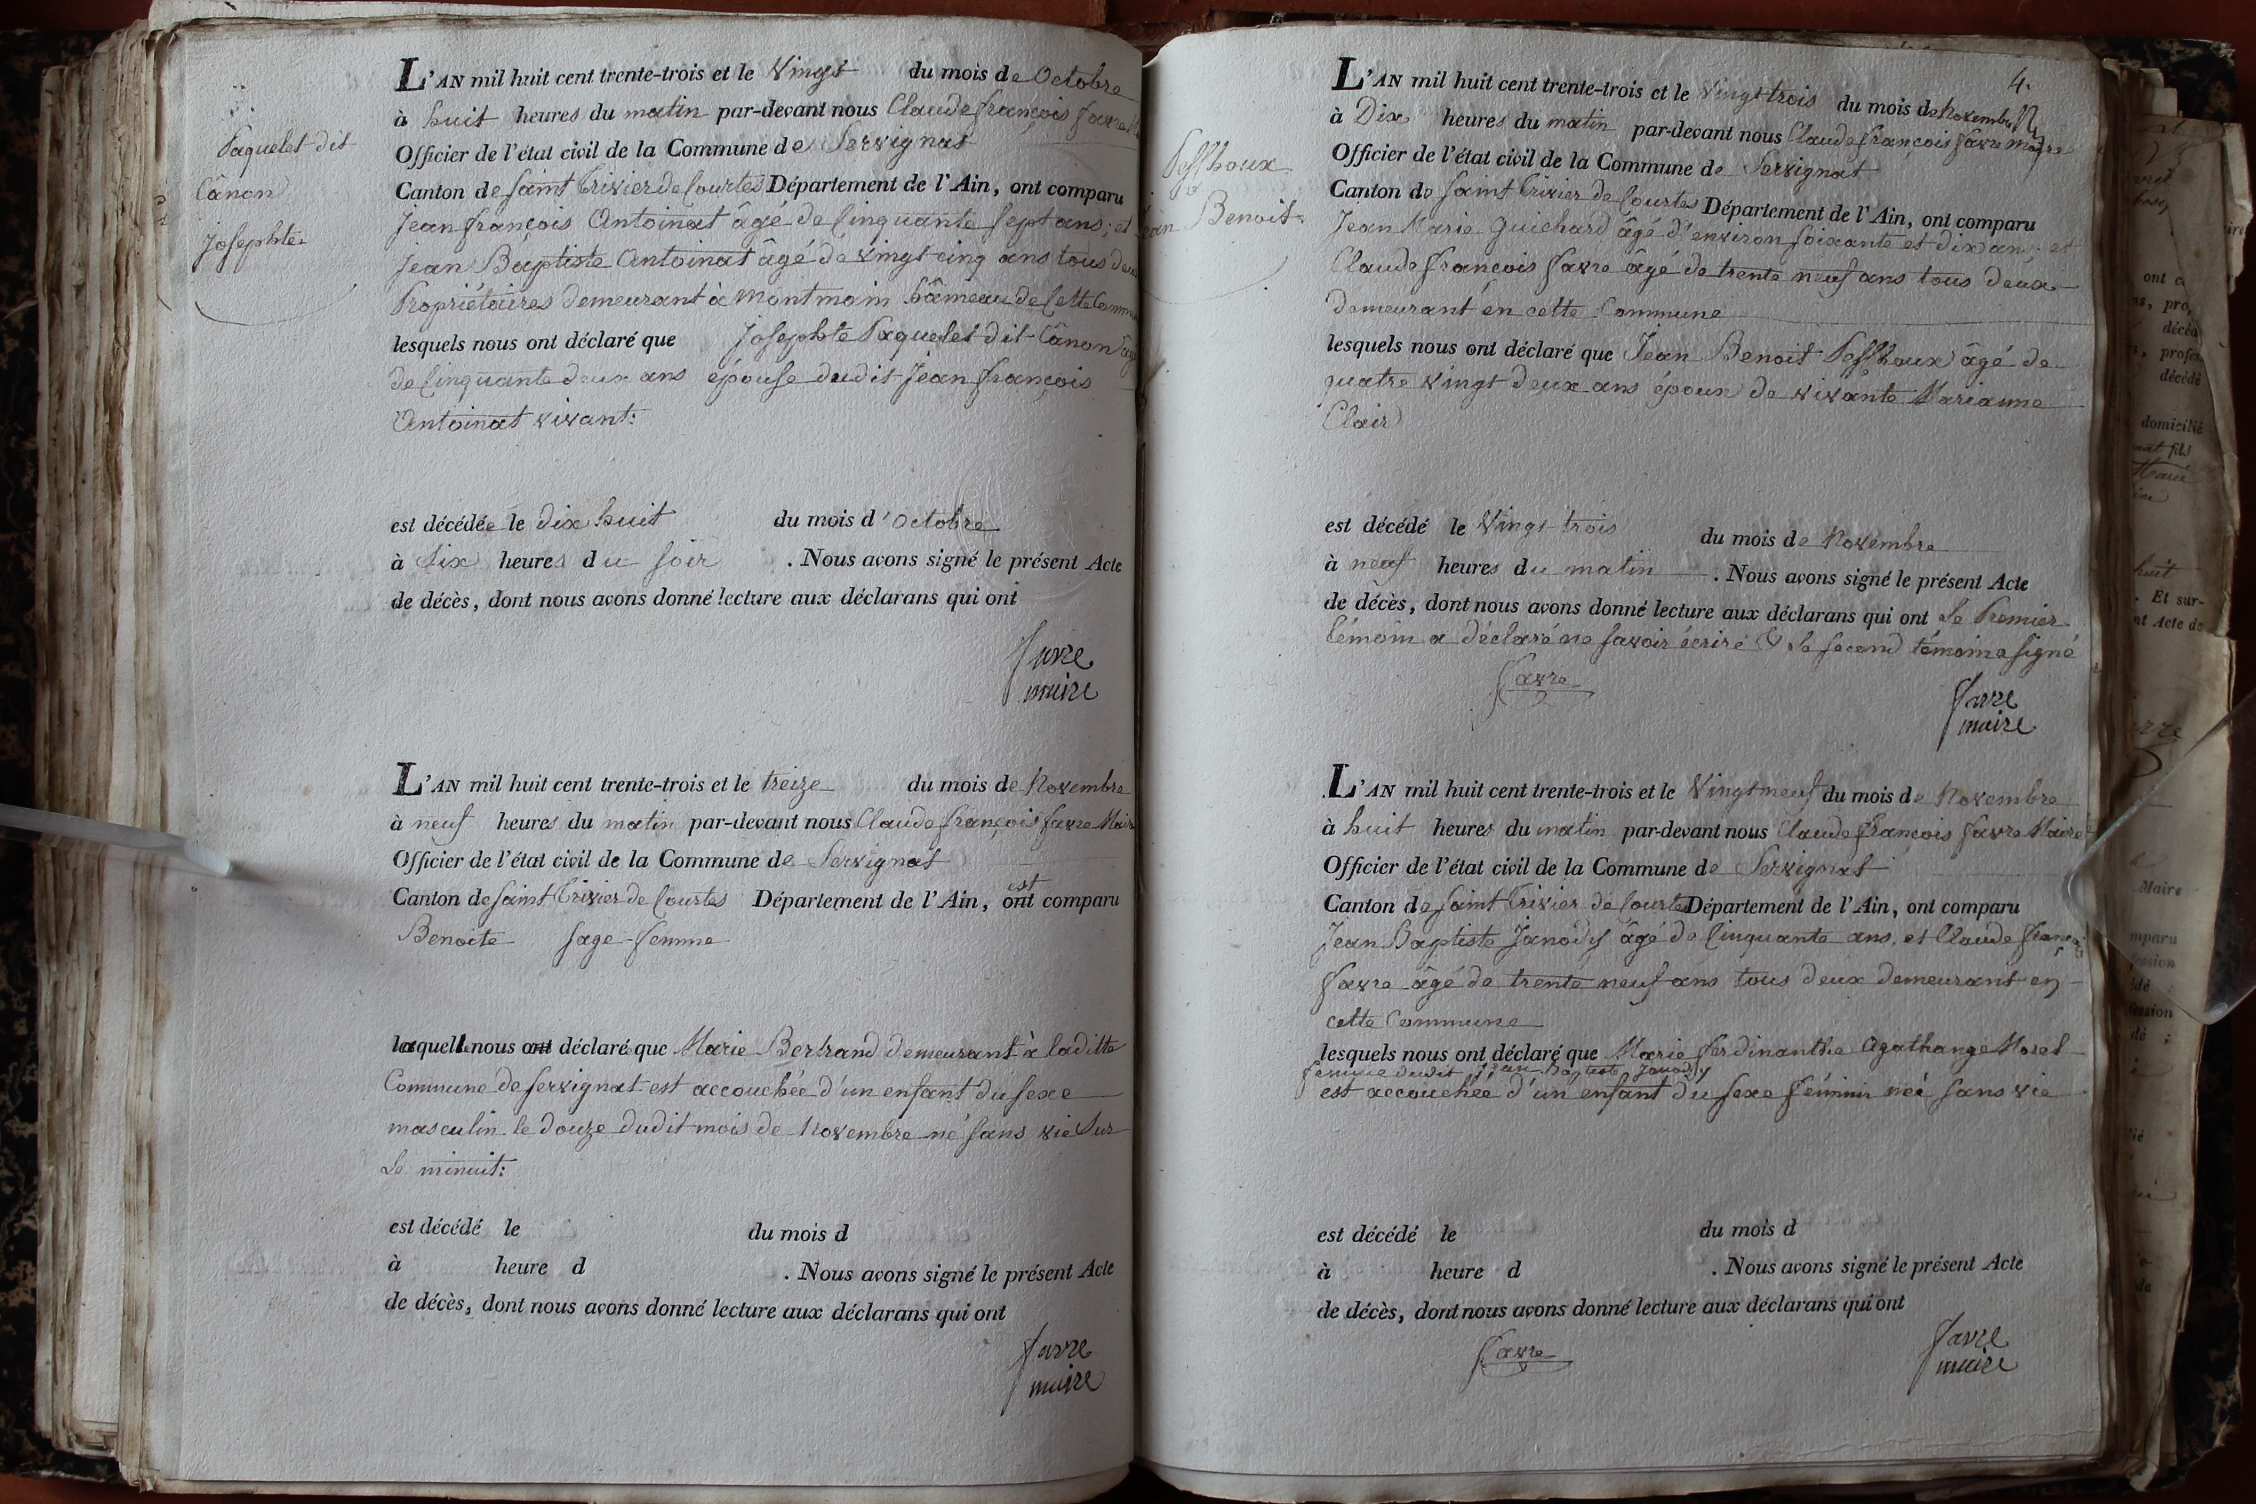 Paquelet dit
Cânon
Josephte
L'AN mil huit cent trente-trois et le Vingt du mois de Octobre
à huit heures du matin par-devant nous Claude françois favre
Officier de l'état civil de la Commune de Servignat
Canton de Saint Trivier de Courtes Département de l'Ain, ont comparu
Jean françois Antoinat âgé de Cinquante Sept ans; et
Jean Baptiste Antoinat âgé de Vingt cinq ans tous deux
Propriétaires demeurant à Montmain hâmeau de Cette Commune
lesquels nous ont déclaré que Josephte Paquelet dit Cânon âgé
de Cinquante deux ans épouse dudit Jean françois
Antoinat vivant:
est décédée le dix huit du mois d'Octobre
à Six heures du soir . Nous avons signé le présent Acte
de décès, dont nous avons donné lecture aux déclarans qui ont
favre
maire
L'AN mil huit cent trente-trois et le treize du mois de Novembre
à neuf heures du matin par-devant nous Claude françois favre Maire
Officier de l'état civil de la Commune de Servignat
est
Canton de Saint Trivier de Courtes Département de l'Ain, ont comparu
Benoite Sage-femme
laquelle nous ont déclaré que Marie Bertrand demeurant à laditte
Commune de Servignat est accouchée d'un enfant du sexe
masculin le douze dudit mois de Novembre né sans vie Sur
Le minuit:
est décédé le du mois d
à heure d . Nous avons signé le présent Acte
de décès, dont nous avons donné lecture aux déclarans qui ont
favre
maire
4.
Benoit
L'AN mil huit cent trente-trois et le Vingt trois du mois de Novembre
à Dix heures du matin par-devant nous Claude françois favre maire
Officier de l'état civil de la Commune de Servignat
Canton de Saint Trivier de Courtes Département de l'Ain, ont comparu
Jean Marie Guichard âgé d'environ soixante et dix ans; et
Claude françois favre âgé de trente neuf ans tous deux
demeurant en cette Commune
lesquels nous ont déclaré que Jean Benoit âgé de
quatre vingt deux ans époux de vivante Marianne
Clair
est décédé le Vingt trois du mois de Novembre
à neuf heures du matin . Nous avons signé le présent Acte
de décès, dont nous avons donné lecture aux déclarans qui ont Le Premier
témoin a déclaré ne savoir écrire & le second témoin a signé
favre
favre
maire
L'AN mil huit cent trente-trois et le Vingt neuf du mois de Novembre
à huit heures du matin par-devant nous Claude françois favre Maire
Officier de l'état civil de la Commune de Servignat
Canton de Saint Trivier de Courtes Département de l'Ain, ont comparu
Jean Baptiste Janody âgé de Cinquante ans, et Claude françois
favre âgé de trente neuf ans tous deux demeurant en
cette Commune
lesquels nous ont déclaré que Marie ferdinanthe Agathange Morel
femme dudit Jean Baptiste Janody
est accouchée d'un enfant du sexe féminin née sans vie
est décédé le du mois d
à heure d . Nous avons signé le présent Acte
de décès, dont nous avons donné lecture aux déclarans qui ont
favre
favre
maire